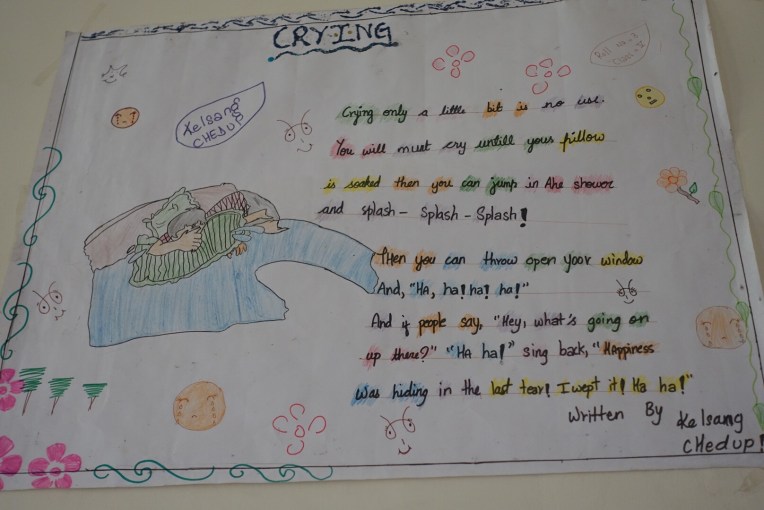 CRYING
Kelsang
CHEDUP
Roll no.
Crying only a little bit is no use.
You will must cry untill your pillow
is soaked then you can jump in the shower
and splash - Splash - Splash!
THen you can throw open your window
And, "HA, ha! ha! ha!"
And if people say, "Hey, what's going on
up there?" "HA ha!" sing back, "HAppiness
was hiding in the last tear! I wept it! Ha ha!"
Written By Kelsang
CHedup!